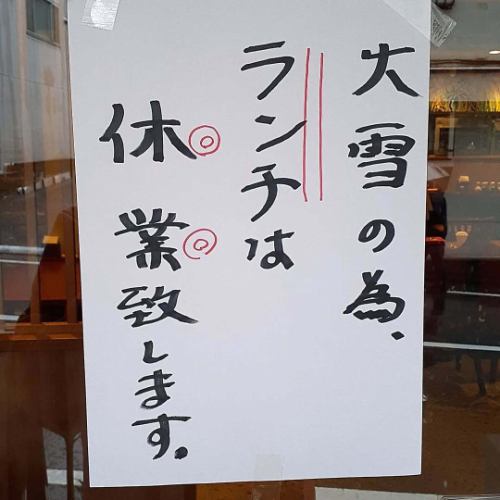 大雪の為、
ランチは
休業致します。